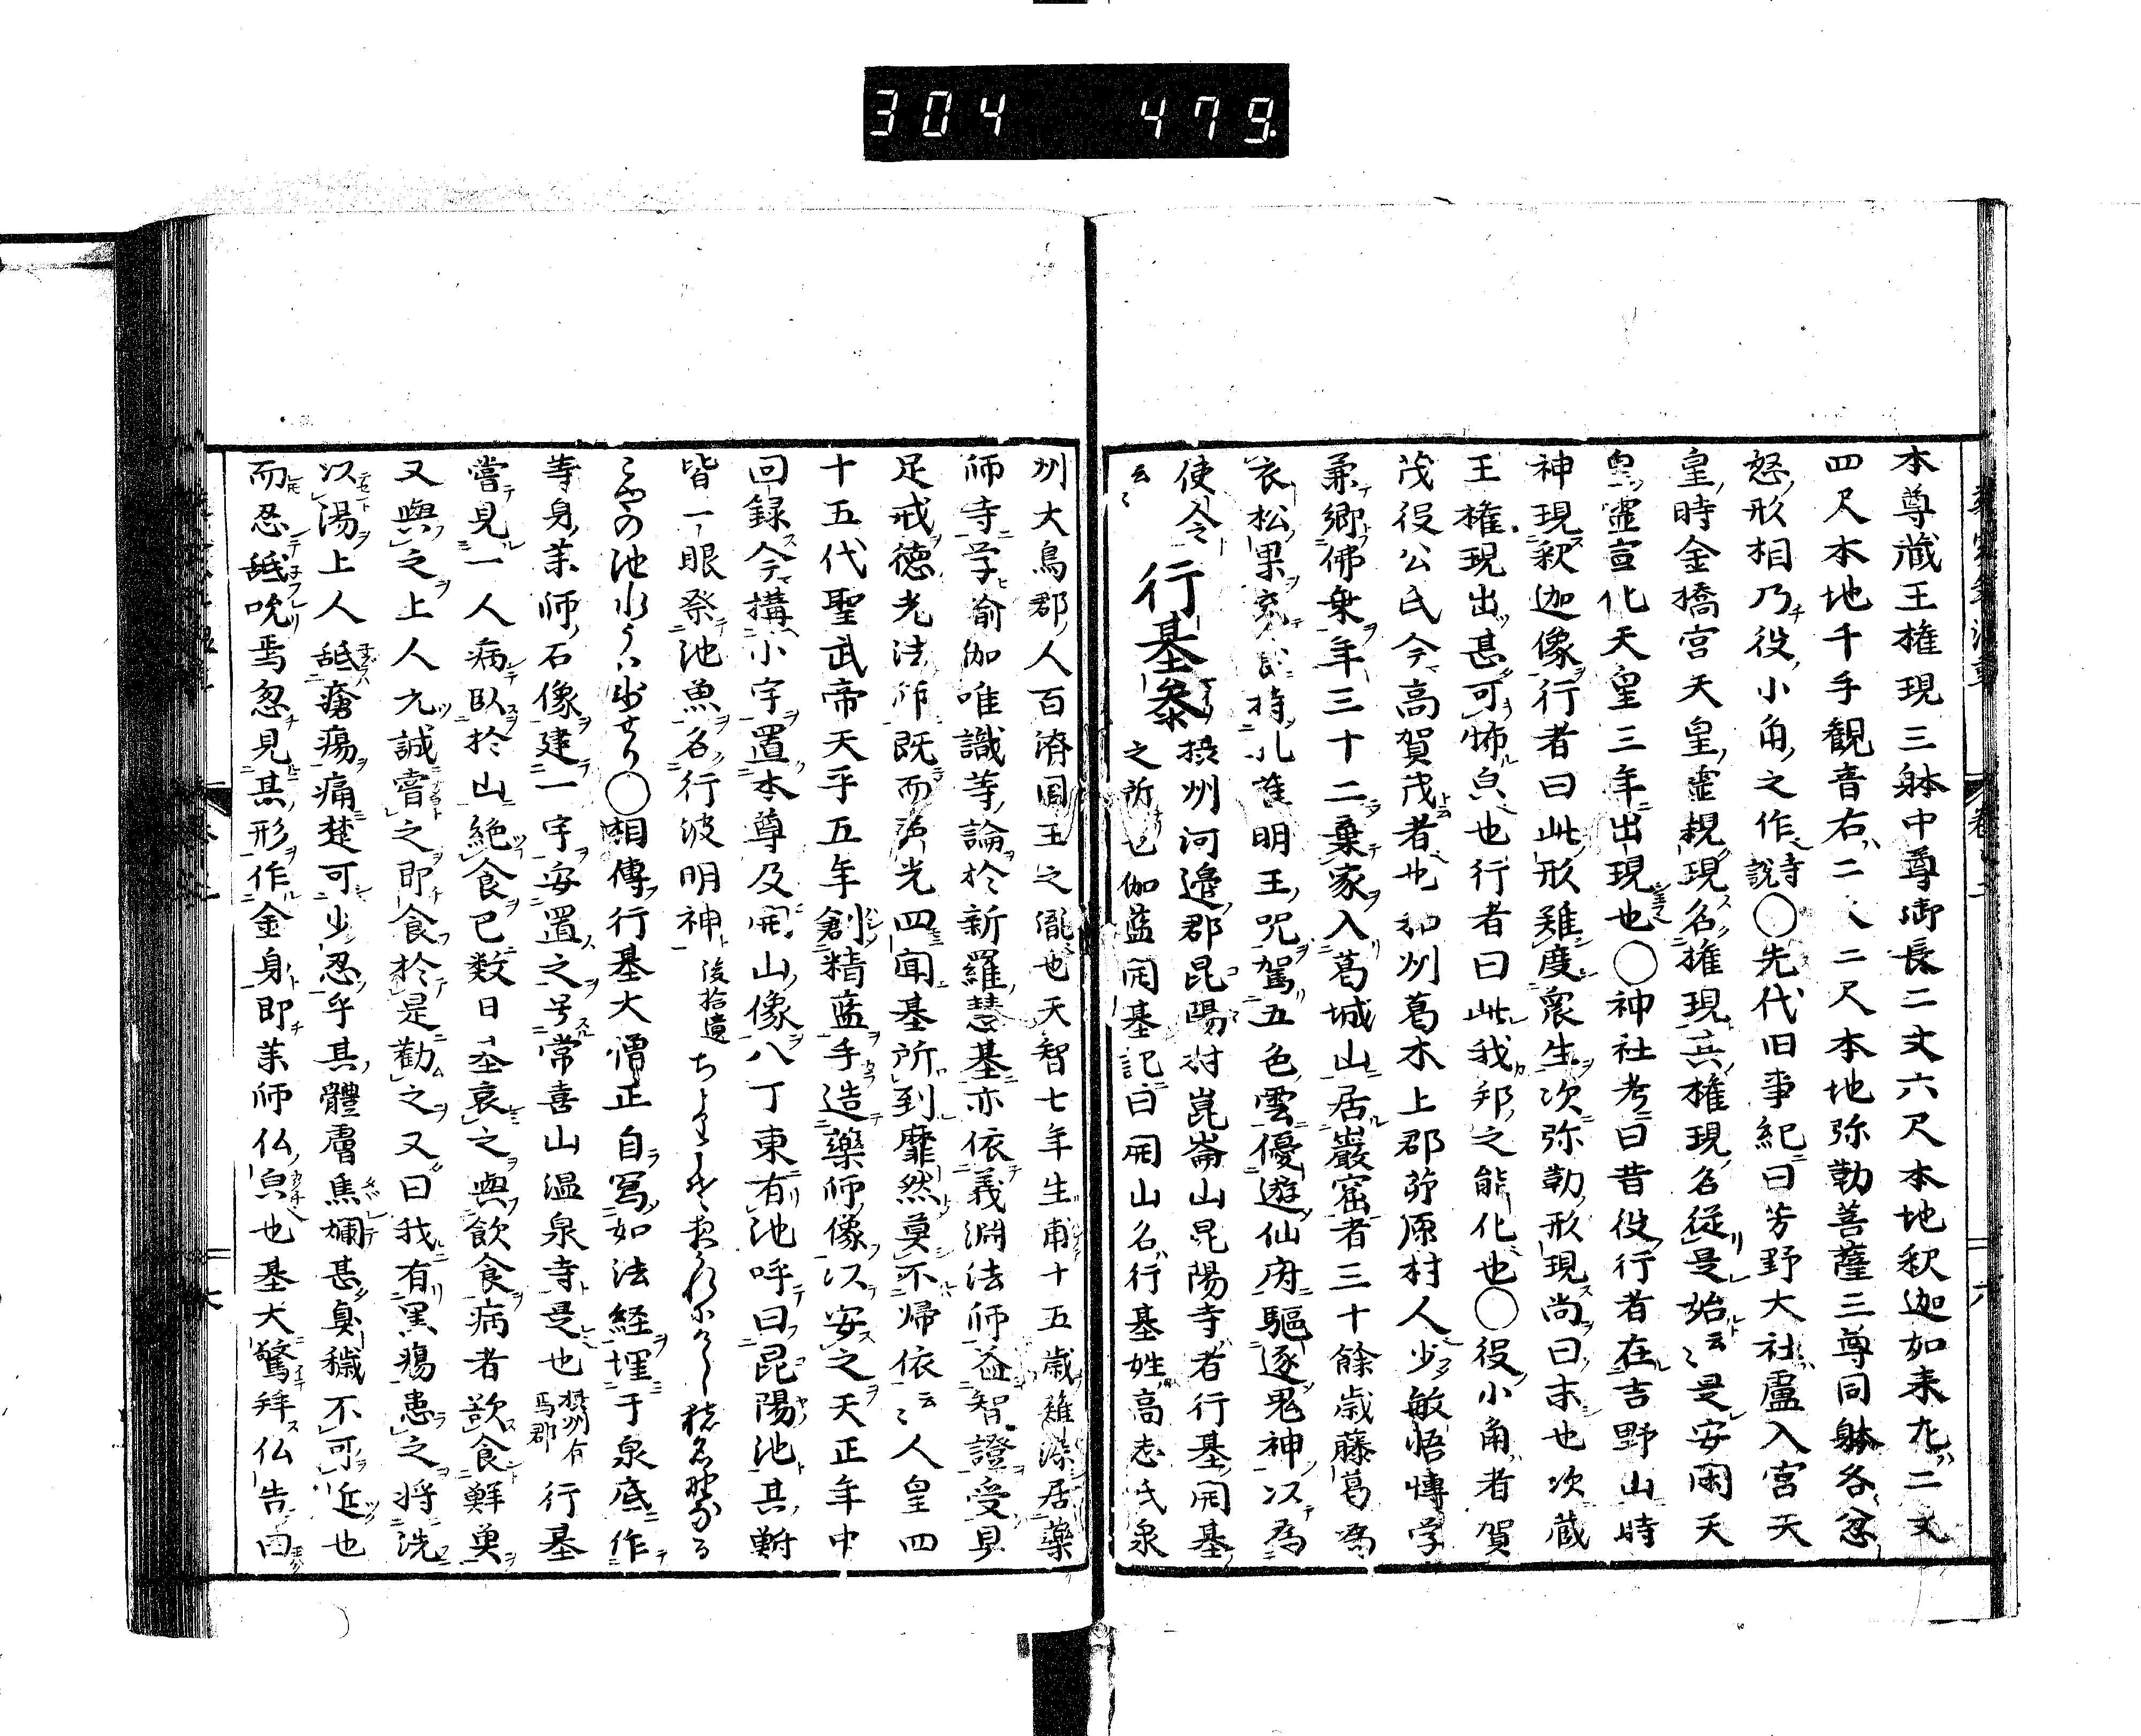 304 479.
本尊蔵王権現三躰中尊御長二丈六尺本地釈迦如来左二丈
四尺本地千手観音右二丈二尺本地弥勒菩薩三尊同躰各忿
怒形相乃役小角之作寺説〇先代旧事紀曰芳野大社盧入宮天
皇時金橋宮天皇霊親現名権現其権現名従是始云〻是安閑天
皇霊宣化天皇三年出現也〇神社考曰昔役行者在吉野山時
神現釈迦像行者曰此形難度衆生次弥勒形現尚曰未也次蔵
王権現出甚可怖皃也行者曰此我邦之能化也〇役小角者賀
茂役公氏今高賀茂者也和州葛木上郡茆原村人少敏悟博学
兼郷佛乗年三十二棄家入葛城山居巖窟者三十餘歳藤葛為
衣松果充 持孔雀明王咒駕五色雲優遊仙府驅逐鬼神以為
使令 行基菴 摂州河邉郡昆陽村崑崙山昆陽寺者行基開基
云〻 之所也伽藍開基記曰開山名行基姓高志氏泉
州大鳥郡人百済国王之胤也天智七年生甫十五歳 居薬
師寺学瑜伽唯識等論於新羅慧基亦依義淵法師益智證受具
足戒徳光法師既而 光四聞基所到靡然莫不帰依云〻人皇四
十五代聖武帝天平五年創精藍手造薬師像以安之天正年中
回録今搆小宇置本尊及開山像八丁東有池呼曰昆陽池其鮒
皆一眼祭池魚名行波明神 後拾遺
こやの池水うハ 〇相傳行基大僧正自写如法経埋于泉底作
等身茉師石像建一宇安置之号常喜山温泉寺是也摂州有馬郡 行基
嘗見一人病臥於山絶食已数日 哀之與飲食病者欲食鮮魚
又與之上人先誠嘗之即食於是勧之又曰我有黒瘍患之将洗
以湯上人舐瘡瘍痛楚可少忍乎其體膚焦爛甚臭穢不可近也
而忍舐吮焉忽見其形作金身即茉師仏皃也基大驚拝仏告曰